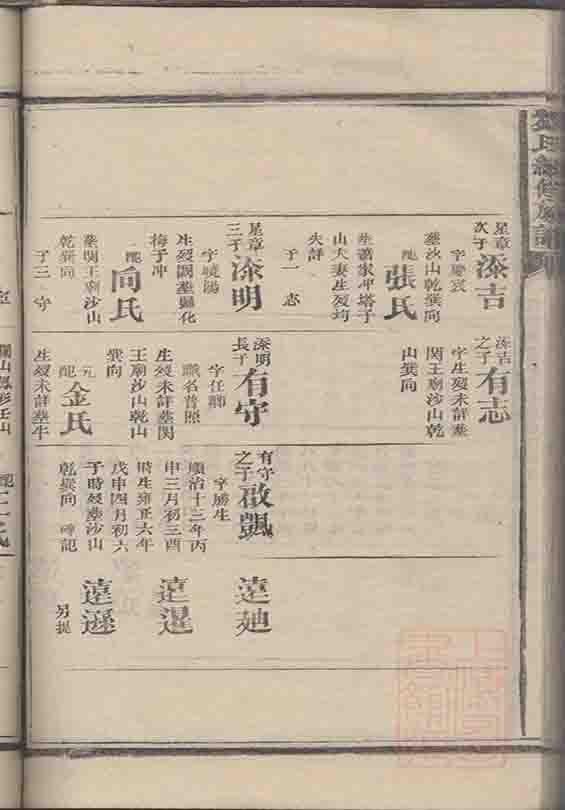 星章次子添吉
字慶宸
墓沙山乾巽向
配張氏
生蕭家冲塔子
山夫妻生歿均
失詳
子一 志
星章三子添明
字曉陽
生歿闕墓縣化
梅子冲
配向氏
墓関王廟沙山
乾巽向
子三 守
添吉之子有志
字生歿未詳墓
関王廟沙山乾
山巽向
添明長子有守
字任卿
職名普照
生歿未詳墓関
王廟沙山乾山
巽向
元配金氏
生歿未詳墓牛
有守之子啟凱
字勝生
順治十三年丙
申三月初三酉
時生雍正六年
戊申四月初六
子時歿墓沙山
乾巽向 碑記
遠廸
遠暹
遠遜
另提